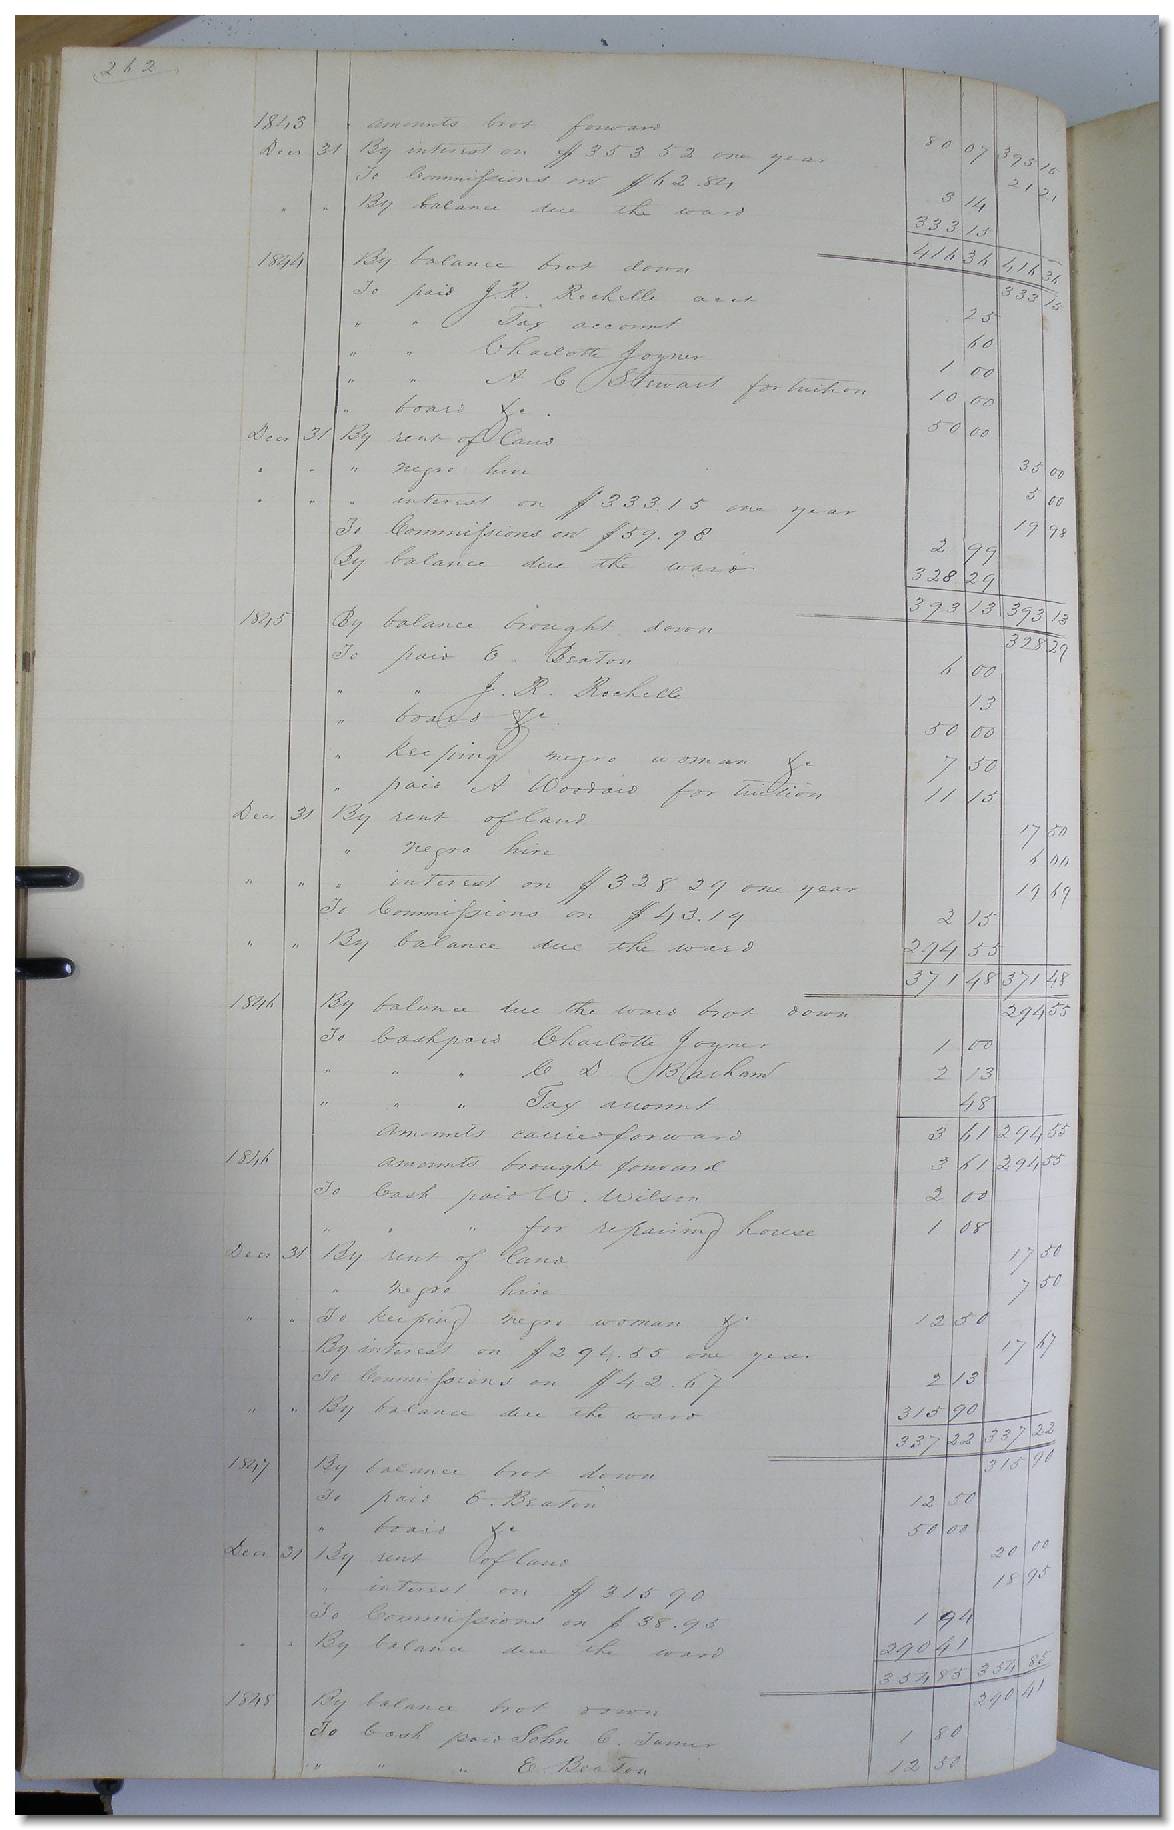 262
1843 " amounts brot forward 80 07 395 15
Decr 31 By interest on $353 52 one year 21 21
To Commissions on $62.84 3 14
" " By balance due the ward 333 15
416 36 416 36
1844 By balance brot down 333 15
To paid J.R. Rochelle acct 25
" " Tax account 60
" " Charlotte Joyner 1 00
" " A C Stewart for tuition 10 00
" board &c. 50 00
Decr 31 By rent of land 35 00
" " " negro hire 5 00
" " " interest on $333.15 one year 19 98
To Commissions on $59.98 2 99
By balance due the ward 328 29
393 13 393 13
1845 By balance brought down 328 29
To paid E. Beaton 6 00
" " J. R. Rochelle 13
" board &c 50 00
" keeping negro woman &c 7 50
" paid A Woodard for tuition 11 15
Decr 31 By rent of land 17 50
" negro hire 6 00
" " " interest on $328 29 one year 19 69
To Commissions on $43.19 2 15
" " By balance due the ward 294 55
371 48 371 48
1846 By balance due the ward brot down 294 55
To Cash paid Charlotte Joyner 1 00
" " " C D Barham 2 13
" " " Tax account 48
Amounts carried forward 3 61 294 55
1846 Amounts brought forward 3 61 294 55
To Cash paid W. Wilson 2 00
" " " for repairing house 1 08
Decr 31 By rent of land 17 50
" negro hire 7 50
" " To keeping negro woman &c 12 50
By interest on $294.55 one year 17 67
To Commissions on $42.67 2 13
" " By balance due the ward 315 90
337 22 337 22
1847 By balance brot down 315 90
To paid E. Beaton 12 50
" board &c 50 00
Decr 31 By rent of land 20 00
" interest on $315 90 18 95
To Commissions on $38.95 1 94
" " By balance due the ward 290 41
354 85 354 85
1848 By balance brot down 290 41
To Cash paid John C. Turner 1 80
" " " E Beaton 12 50